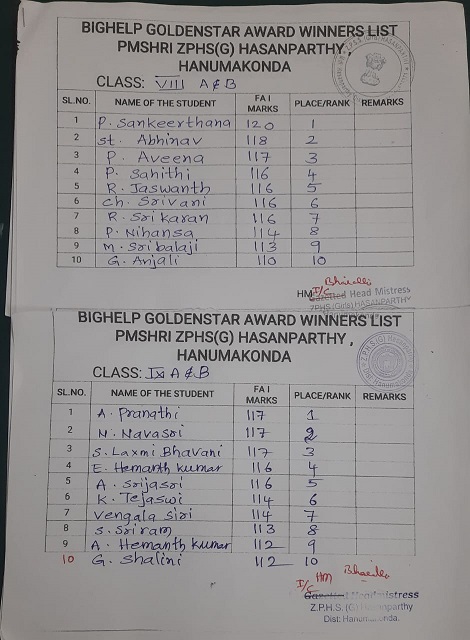 BIGHELP GOLDENSTAR AWARD WINNERS LIST
PMSHRI ZPHS(G) HASANPARTHY,
HANUMAKONDA
CLASS: VIII A & B
SL.NO. NAME OF THE STUDENT FA I MARKS PLACE/RANK REMARKS
1 P. Sankeerthana 120 1
2 St. Abhinav 118 2
3 P. Aveena 117 3
4 P. Sahithi 116 4
5 R. Jaswanth 116 5
6 Ch. Srivani 116 6
7 R. Sri karan 116 7
8 P. Nihansa 114 8
9 M. Sribalaji 113 9
10 G. Anjali 110 10
HM I/C
Gazetted Head Mistress
Z.P.H.S (Girls) HASANPARTHY
BIGHELP GOLDENSTAR AWARD WINNERS LIST
PMSHRI ZPHS(G) HASANPARTHY,
HANUMAKONDA
CLASS: IX A & B
SL.NO. NAME OF THE STUDENT FA I MARKS PLACE/RANK REMARKS
1 A. Pranathi 117 1
2 N. Navasri 117 2
3 S. Laxmi Bhavani 117 3
4 E. Hemanth kumar 116 4
5 A. Srijasri 116 5
6 K. Tejaswi 114 6
7 Vengala Siri 114 7
8 S. Sriram 113 8
9 A. Hemanth kumar 112 9
10 G. Shalini 112 10
I/C HM
Gazetted Headmistress
Z.P.H.S. (G) Hasanparthy
Dist: Hanumakonda.